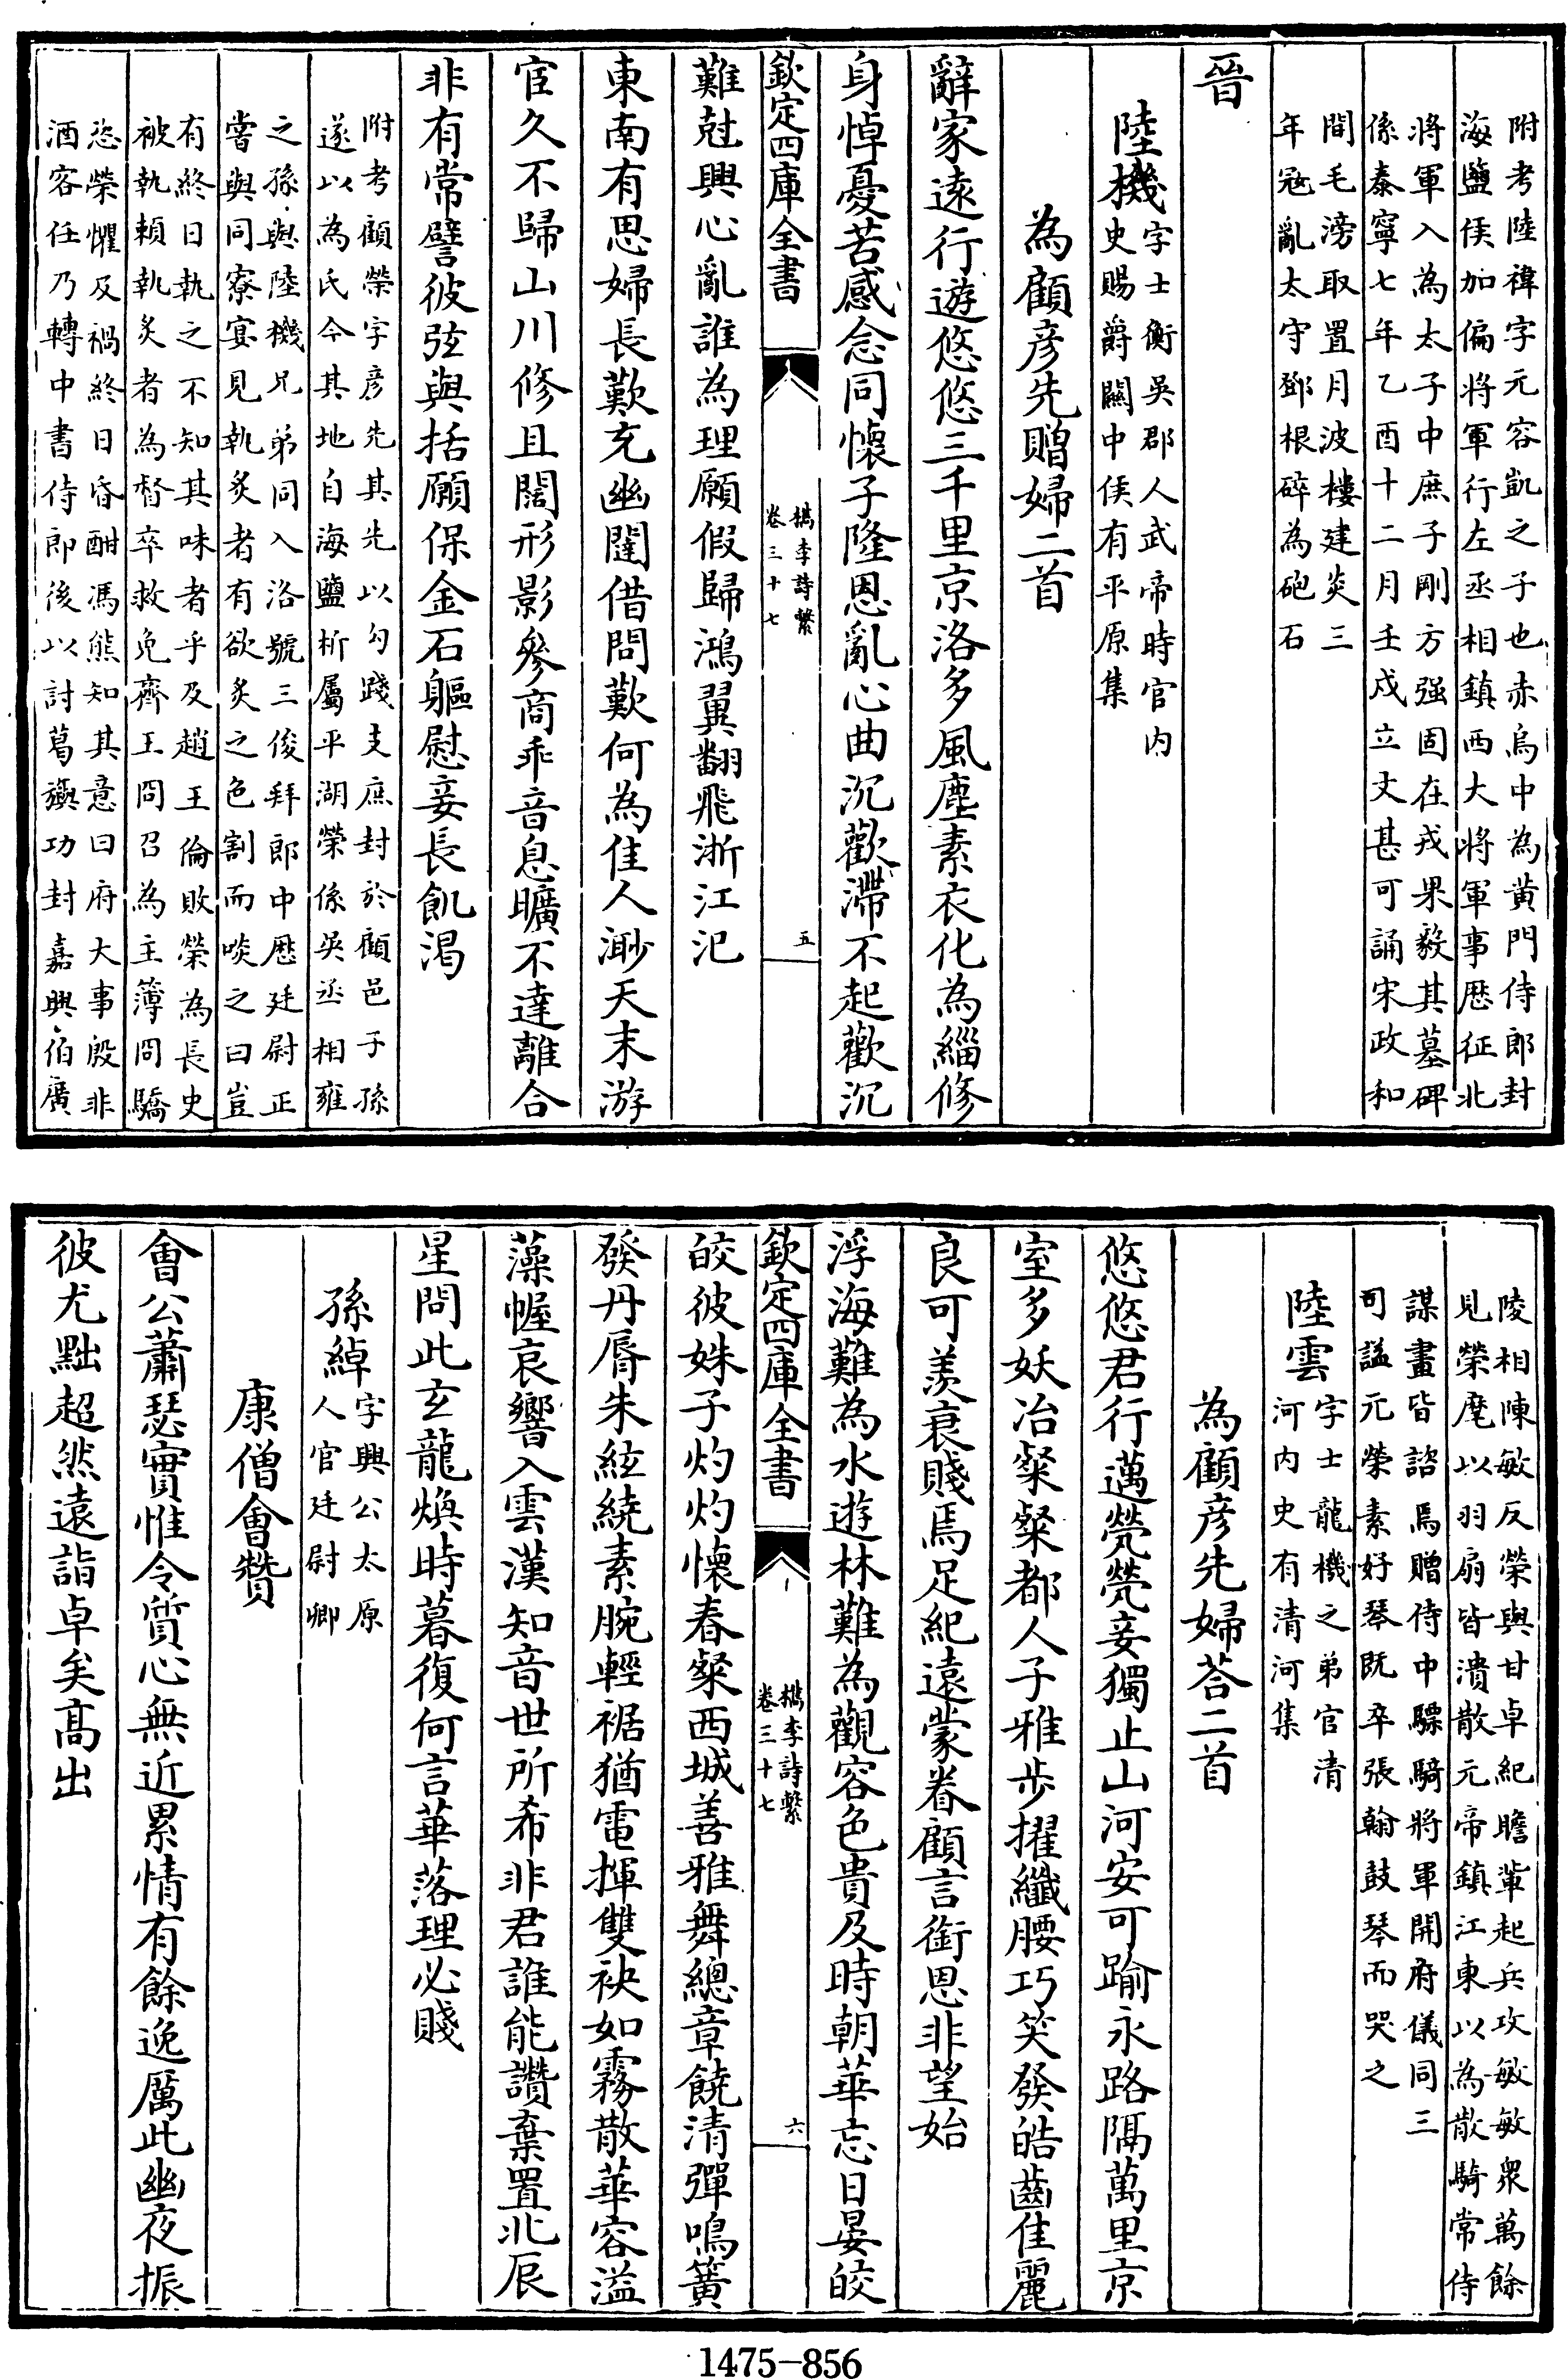 附考陸禕字元容凱之子也赤烏中為黃門侍郎封
海鹽侯加偏將軍行左丞相鎮西大將軍事歷征北
將軍入為太子中庶子剛方强固在戎果毅其墓碑
係泰寧七年乙酉十二月壬戌立文甚可誦宋政和
間毛滂取置月波樓建炎三
年冦亂太守鄧根碎為砲石
晉
陸機字士衡吳郡人武帝時官內
史賜爵關中侯有平原集
為顧彥先贈婦二首
辭家遠行遊悠悠三千里京洛多風塵素衣化為緇修
身悼憂苦感念同懷子隆恩亂心曲沉歡滯不起歡沉
欽定四庫全書
檇李詩繫
卷三十七
五
難尅興心亂誰為理願假歸鴻翼翻飛浙江汜
東南有思婦長歎充幽闥借問歎何為佳人渺天末游
宦久不歸山川修且闊形影參商乖音息曠不達離合
非有常譬彼弦與括願保金石軀慰妾長飢渴
附考顧榮字彥先其先以勾踐支庶封於顧邑子孫
遂以為氏今其地自海鹽析屬平湖榮係吳丞相雍
之孫與陸機兄弟同入洛號三俊拜郎中歷廷尉正
嘗與同寮宴見執炙者有欲炙之色割而啖之曰豈
有終日執之不知其味者乎及趙王倫敗榮為長史
被執賴執炙者為督卒救免齊王冏召為主簿冏驕
恣榮懼及禍終日昏酣馮熊知其意曰府大事殷非
酒客任乃轉中書侍郎後以討葛旟功封嘉興伯廣
陵相陳敏反榮與甘卓紀瞻軰起兵攻敏敏衆萬餘
見榮麾以羽扇皆潰散元帝鎮江東以為散騎常侍
謀畫皆諮焉贈侍中驃騎將軍開府儀同三
司諡元榮素好琴旣卒張翰鼓琴而哭之
陸雲字士龍機之弟官清
河內史有清河集
為顧彥先婦荅二首
悠悠君行邁煢煢妾獨止山河安可踰永路隔萬里京
室多妖冶粲粲都人子雅步擢纖腰巧笑發皓齒佳麗
良可羨衰賤焉足紀遠蒙眷顧言銜恩非望始
浮海難為水遊林難為觀容色貴及時朝華忘日晏皎
欽定四庫全書
檇李詩繫
卷三十七
六
皎彼姝子灼灼懷春粲西城善雅舞總章饒清彈鳴簧
發丹脣朱絃繞素腕輕裾猶電揮雙袂如霧散華容溢
藻幄哀響入雲漢知音世所希非君誰能讚棄置北辰
星問此玄龍煥時暮復何言華落理必賤
孫綽字興公太原
人官廷尉卿
康僧會贊
會公蕭瑟實惟令質心無近累情有餘逸厲此幽夜振
彼尤黜超然遠詣卓矣高出
1475-856